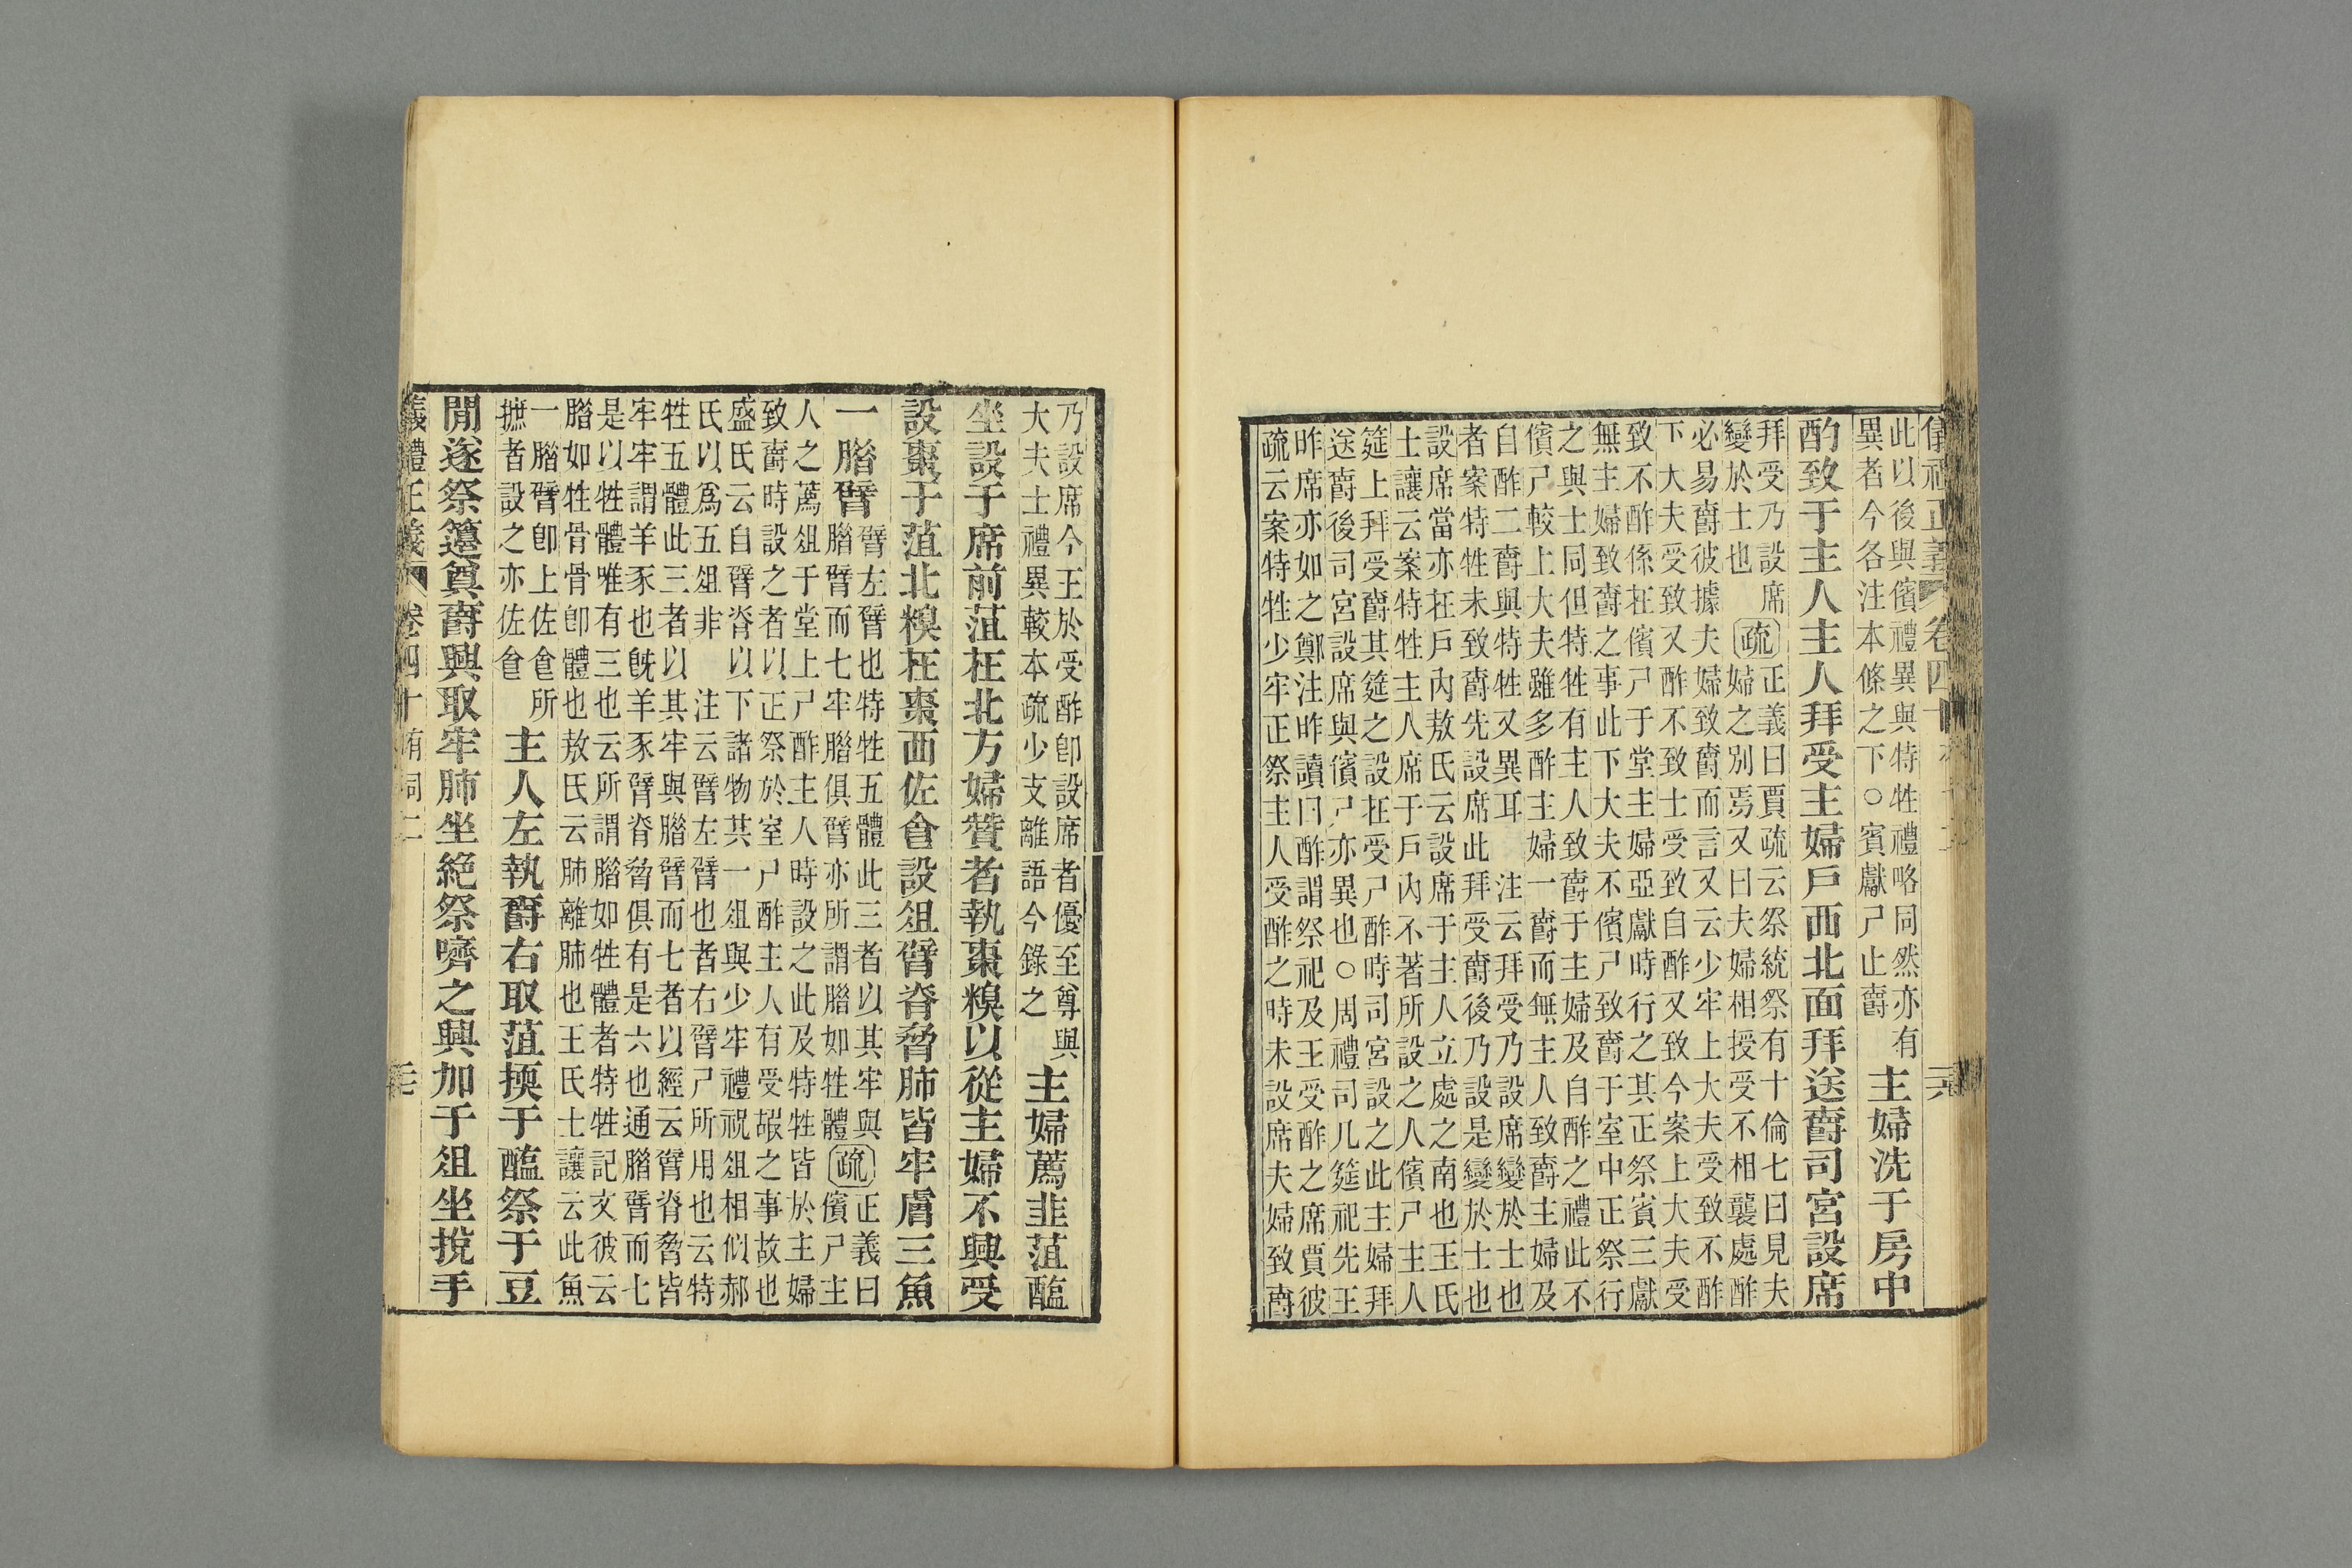 此以後與儐禮異與特牲禮略同然亦有
異者今各注本條之下○賓獻尸止爵
主婦洗于房中
酌致于主人主人拜受主婦戶西北面拜送爵司宮設席
拜受乃設席
變於士也
疏
正義曰賈疏云祭統祭有十倫七曰見夫
婦之別焉又曰夫婦相授受不相襲處酢
必易爵彼據夫婦致爵而言又云少牢上大夫受致不酢
下大夫受致又酢不致士受致自酢又致今案上大夫受
致不酢係在儐尸于堂主婦亞獻時行之其正祭賓三獻
無主婦致爵之事此下大夫不儐尸致爵于室中正祭行
之與士同但特牲有主人致爵于主婦及自酢之禮此不
儐尸較上大夫雖多酢主婦一爵而無主人致爵主婦及
自酢二爵與特牲又異耳 注云拜受乃設席變於士也
者案特牲未致爵先設席此拜受爵後乃設是變於士也
設席當亦在戶內敖氏云設席于主人立處之南也王氏
士讓云案特牲主人席于戶內不著所設之人儐尸主人
筵上拜受爵其筵之設在受尸酢時司宮設之此主婦拜
送爵後司宮設席與儐尸亦異也○周禮司几筵祀先王
昨席亦如之鄭注昨讀曰酢謂祭祀及王受酢之席賈彼
疏云案特牲少牢正祭主人受酢之時未設席夫婦致爵
乃設席今王於受酢卽設席者優至尊與
大夫士禮異較本疏少支離語今錄之
主婦薦韭菹醢
坐設于席前菹在北方婦贊者執棗糗以從主婦不興受
設棗于菹北糗在棗西佐食設俎臂脊脅肺皆牢膚三魚
一腊臂
臂左臂也特牲五體此三者以其牢與
腊臂而七牢腊俱臂亦所謂腊如牲體
疏
正義曰
儐尸主
人之薦俎于堂上尸酢主人時設之此及特牲皆於主婦
致爵時設之者以正祭於室尸酢主人有受嘏之事故也
盛氏云自臂脊以下諸物其一俎與少牢禮祝俎相似郝
氏以爲五俎非 注云臂左臂也者右臂尸所用也云特
牲五體此三者以其牢與腊臂而七者以經云臂脊脅皆
牢牢謂羊豕也旣羊豕臂脊脅俱有是六也通腊臂而七
是以牲體唯有三也云所謂腊如牲體者特牲記文彼云
腊如牲骨骨卽體也敖氏云肺離肺也王氏士讓云此魚
一腊臂卽上佐食所
摭者設之亦佐食
主人左執爵右取菹擩于醢祭于豆
閒遂祭籩奠爵興取牢肺坐絕祭嚌之興加于俎坐挩手